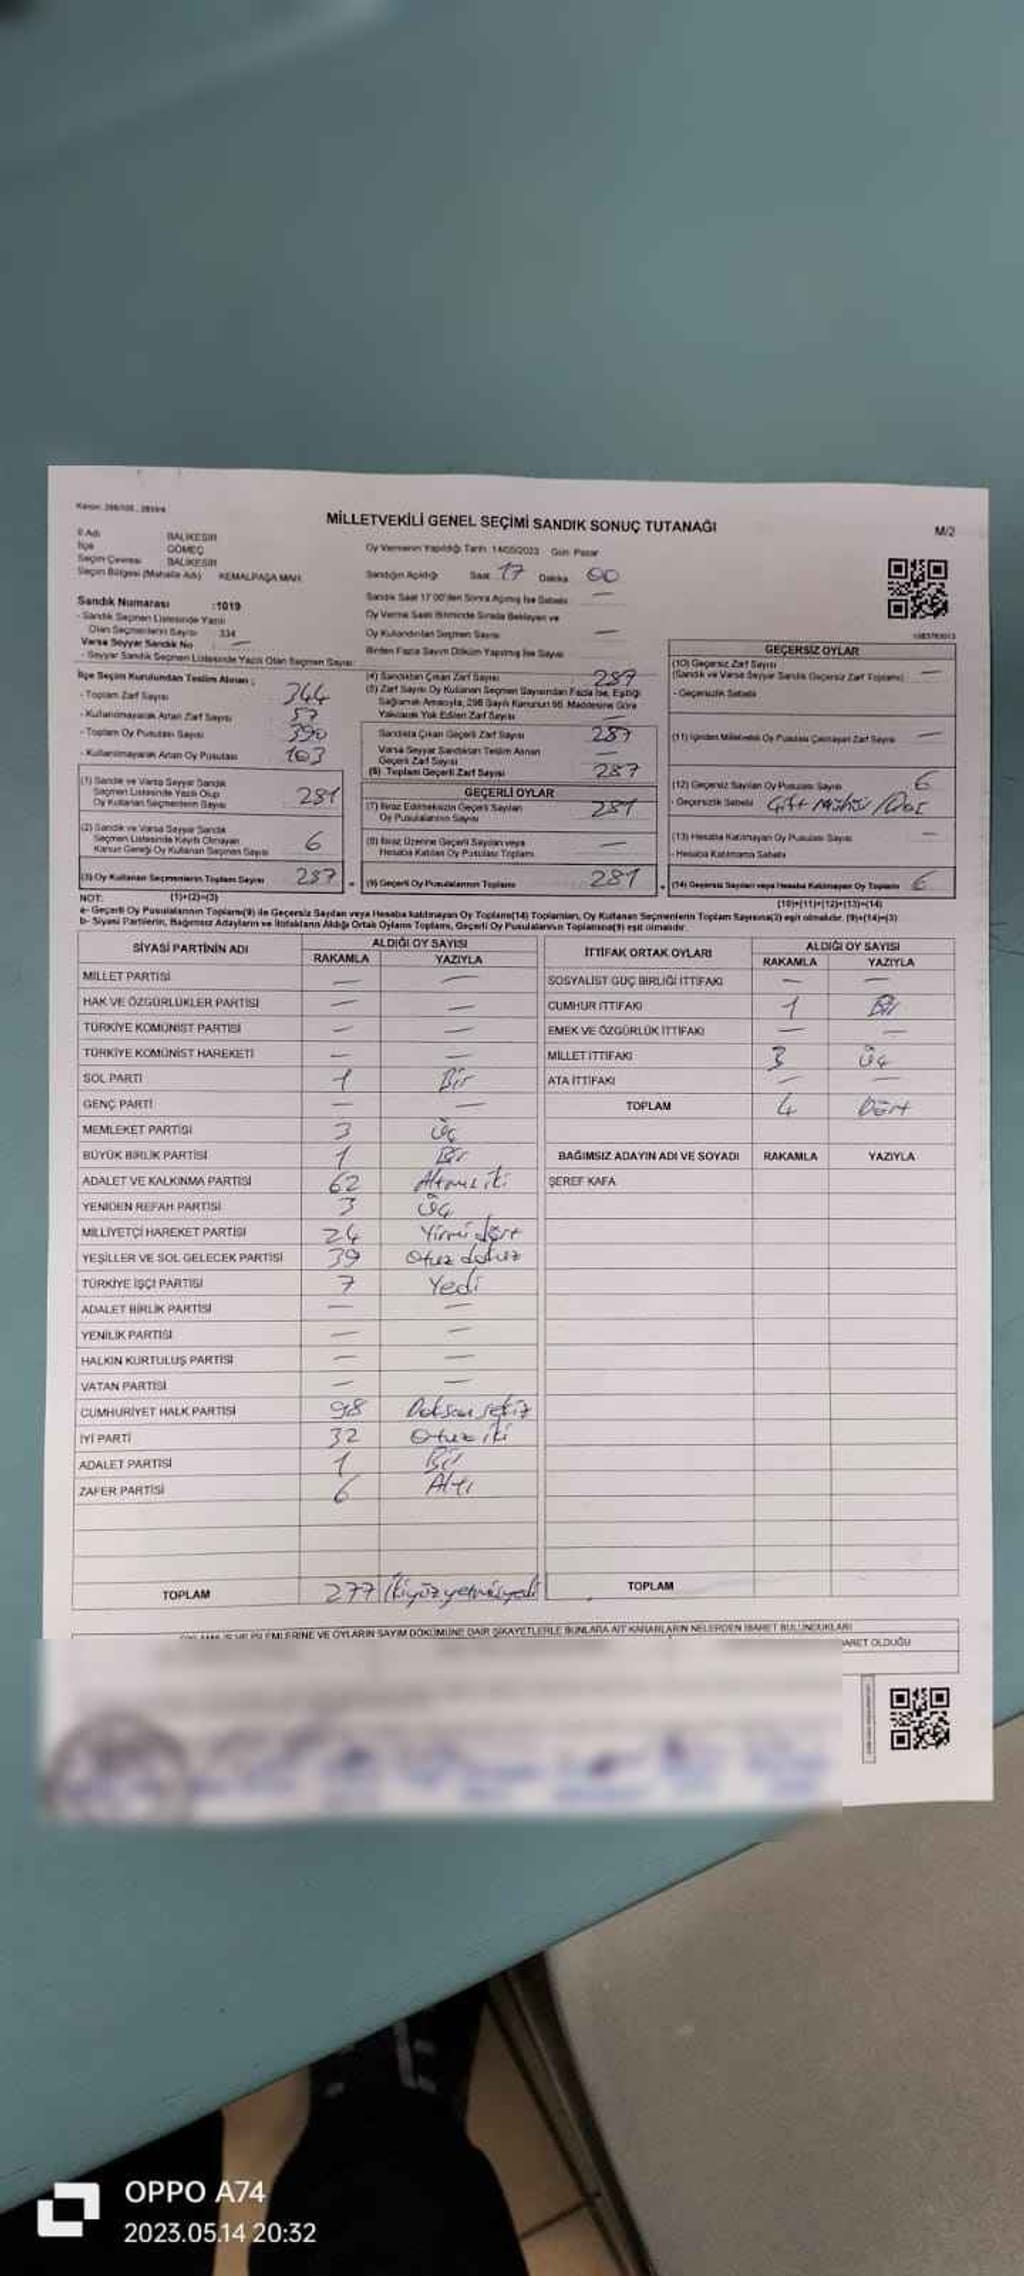 MİLLETVEKİLİ GENEL SEÇİMİ SANDIK SONUÇ TUTANAĞI
M/2
İl Adı BALIKESİR
İlçe GÖMEÇ
Seçim Çevresi BALIKESİR
Seçim Bölgesi (Mahalle Adı) KEMALPAŞA MAH.
Oy Vermenin Yapıldığı Tarih: 14/05/2023 Gün: Pazar
Sandığın Açıldığı Saat 17 Dakika 00
Sandık Saat 17:00'den Sonra Açılmış İse Sebebi —
Oy Verme Saati Bitiminde Sırada Bekleyen ve
Oy Kullandırılan Seçmen Sayısı —
Birden Fazla Sayım Döküm Yapılmış İse Sayısı
Sandık Numarası :1019
- Sandık Seçmen Listesinde Yazılı
Olan Seçmenlerin Sayısı 334
Varsa Seyyar Sandık No —
- Seyyar Sandık Seçmen Listesinde Yazılı Olan Seçmen Sayısı:
İlçe Seçim Kurulundan Teslim Alınan ;
- Toplam Zarf Sayısı 344
- Kullanılmayarak Artan Zarf Sayısı 57
- Toplam Oy Pusulası Sayısı 390
- Kullanılmayarak Artan Oy Pusulası 103
(1) Sandık ve Varsa Seyyar Sandık
Seçmen Listesinde Yazılı Olup
Oy Kullanan Seçmenlerin Sayısı 281
(2) Sandık ve Varsa Seyyar Sandık
Seçmen Listesinde Kayıtlı Olmayan
Kanun Gereği Oy Kullanan Seçmen Sayısı 6
(3) Oy Kullanan Seçmenlerin Toplam Sayısı 287
(4) Sandıktan Çıkan Zarf Sayısı 287
(5) Zarf Sayısı Oy Kullanan Seçmen Sayısından Fazla İse, Eşitliği
Sağlamak Amacıyla, 298 Sayılı Kanunun 98. Maddesine Göre
Yakılarak Yok Edilen Zarf Sayısı —
Sandıkta Çıkan Geçerli Zarf Sayısı 287
Varsa Seyyar Sandıktan Teslim Alınan
Geçerli Zarf Sayısı —
(6) Toplam Geçerli Zarf Sayısı 287
GEÇERLİ OYLAR
(7) İtiraz Edilmeksizin Geçerli Sayılan
Oy Pusulalarının Sayısı 281
(8) İtiraz Üzerine Geçerli Sayılan veya
Hesaba Katılan Oy Pusulası Toplamı —
(9) Geçerli Oy Pusulalarının Toplamı 281
GEÇERSİZ OYLAR
(10) Geçersiz Zarf Sayısı —
(Sandık ve Varsa Seyyar Sandık Geçersiz Zarf Toplamı)
- Geçersizlik Sebebi
(11) İçinden Milletvekili Oy Pusulası Çıkmayan Zarf Sayısı —
(12) Geçersiz Sayılan Oy Pusulası Sayısı 6
- Geçersizlik Sebebi Çift Mühür /
(13) Hesaba Katılmayan Oy Pusulası Sayısı —
- Hesaba Katılmama Sebebi
(14) Geçersiz Sayılan veya Hesaba Katılmayan Oy Toplamı 6
NOT: (1)+(2)=(3)
(10)+(11)+(12)+(13)=(14)
a- Geçerli Oy Pusulalarının Toplamı(9) ile Geçersiz Sayılan veya Hesaba katılmayan Oy Toplamı(14) Toplamları, Oy Kullanan Seçmenlerin Toplam Sayısına(3) eşit olmalıdır. (9)+(14)=(3)
b- Siyasi Partilerin, Bağımsız Adayların ve İttifakların Aldığı Ortak Oyların Toplamı, Geçerli Oy Pusulalarının Toplamına(9) eşit olmalıdır.
SİYASİ PARTİNİN ADI ALDIĞI OY SAYISI
RAKAMLA YAZIYLA
MİLLET PARTİSİ — —
HAK VE ÖZGÜRLÜKLER PARTİSİ — —
TÜRKİYE KOMÜNİST PARTİSİ — —
TÜRKİYE KOMÜNİST HAREKETİ — —
SOL PARTİ 1 Bir
GENÇ PARTİ — —
MEMLEKET PARTİSİ 3 Üç
BÜYÜK BİRLİK PARTİSİ 1 Bir
ADALET VE KALKINMA PARTİSİ 62 Altmış iki
YENİDEN REFAH PARTİSİ 3 Üç
MİLLİYETÇİ HAREKET PARTİSİ 24 Yirmi dört
YEŞİLLER VE SOL GELECEK PARTİSİ 39 Otuz dokuz
TÜRKİYE İŞÇİ PARTİSİ 7 Yedi
ADALET BİRLİK PARTİSİ — —
YENİLİK PARTİSİ — —
HALKIN KURTULUŞ PARTİSİ — —
VATAN PARTİSİ — —
CUMHURİYET HALK PARTİSİ 98 Doksan sekiz
İYİ PARTİ 32 Otuz iki
ADALET PARTİSİ 1 Bir
ZAFER PARTİSİ 6 Altı
TOPLAM 277 İkiyüz yetmişyedi
İTTİFAK ORTAK OYLARI ALDIĞI OY SAYISI
RAKAMLA YAZIYLA
SOSYALİST GÜÇ BİRLİĞİ İTTİFAKI — —
CUMHUR İTTİFAKI 1 Bir
EMEK VE ÖZGÜRLÜK İTTİFAKI — —
MİLLET İTTİFAKI 3 Üç
ATA İTTİFAKI — —
TOPLAM 4 Dört
BAĞIMSIZ ADAYIN ADI VE SOYADI RAKAMLA YAZIYLA
ŞEREF KAFA
TOPLAM
İŞLEMLERİNE VE OYLARIN SAYIM DÖKÜMÜNE DAİR ŞİKAYETLERLE BUNLARA AİT KARARLARIN NELERDEN İBARET BULUNDUKLARI
İBARET OLDUĞU
OPPO A74
2023.05.14 20:32